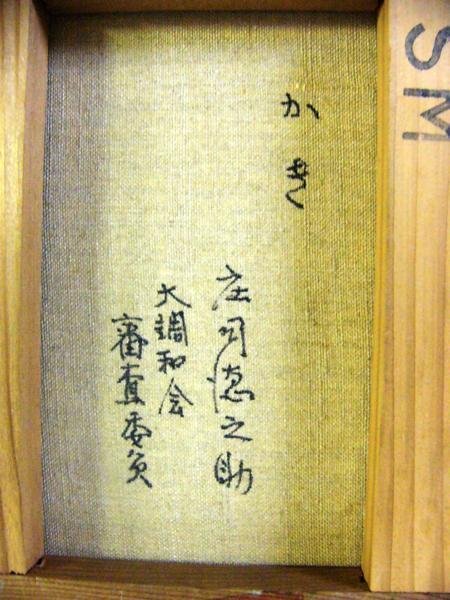 SM
かき
庄司徳之助
大調和会
審査委員